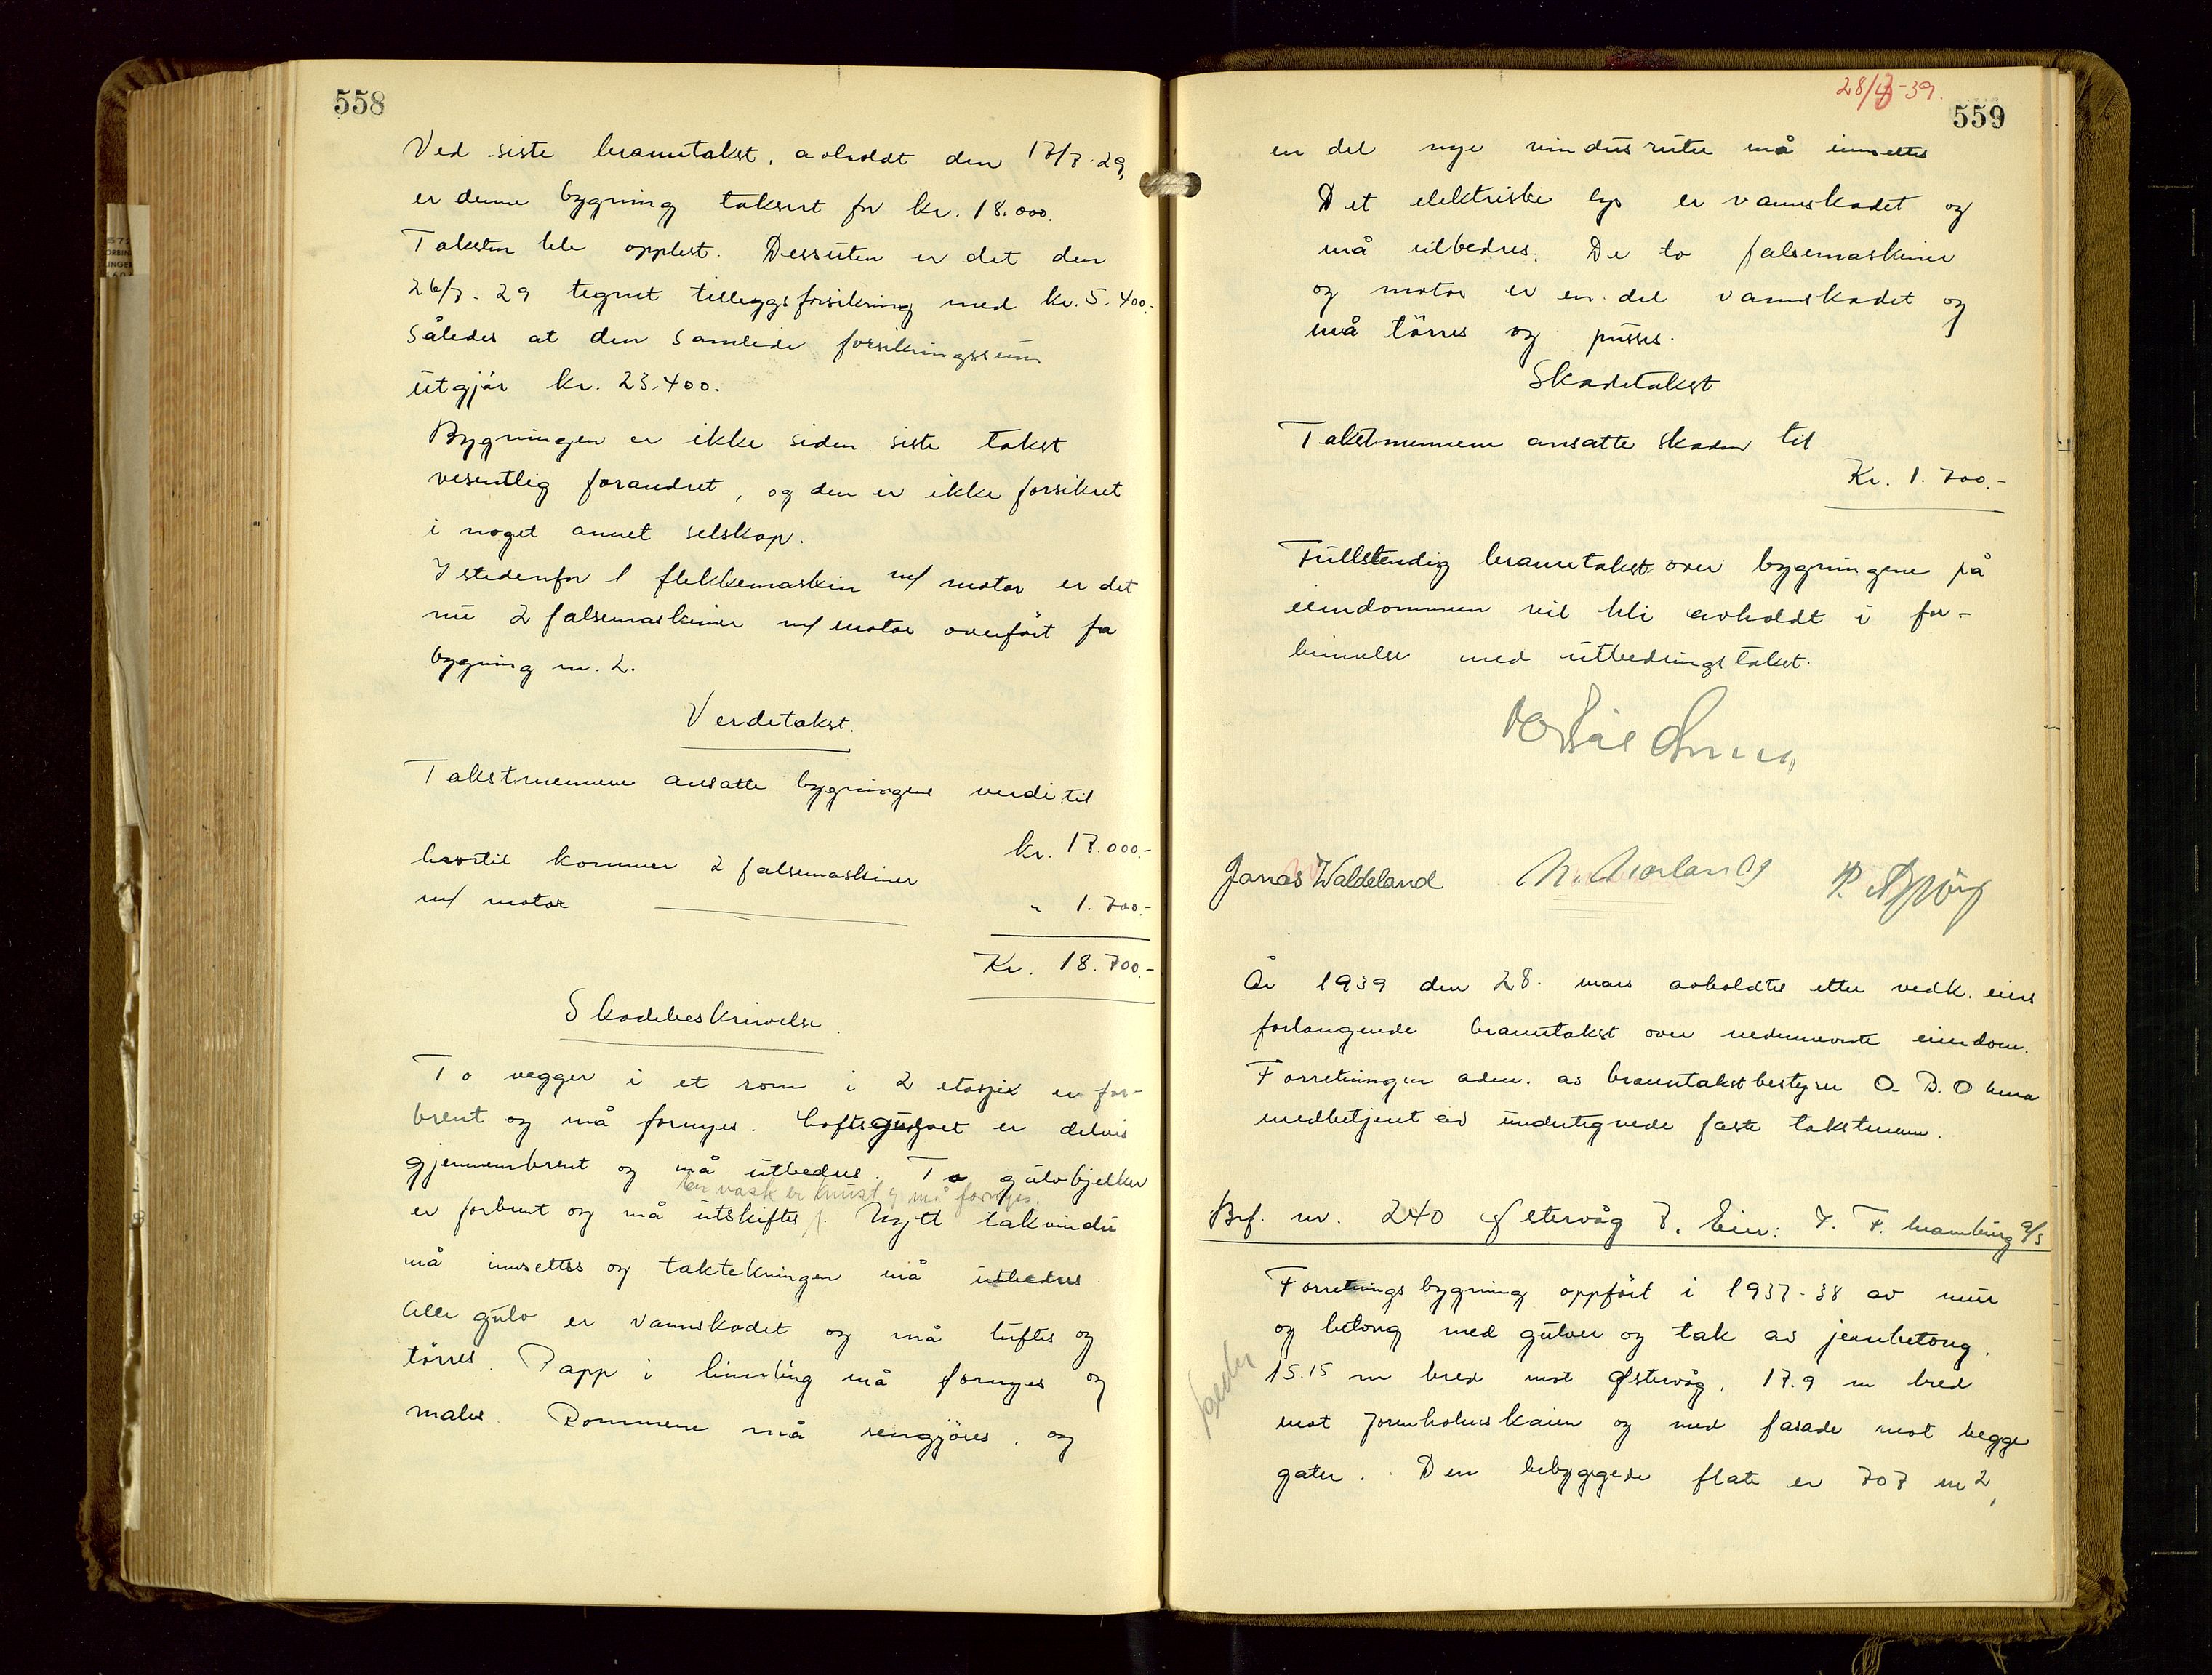 558
Ved siste branntakst, avholdt den 17/7.29,
er denne bygning taksert for kr. 18.000.
Taksten ble opplest. Dessuten er det den
26/7.29 tegnet tilleggsforsikring med kr. 5.400.-
således at den samlede forsikringssum
utgjör kr. 23.400.
Bygningen er ikke siden siste takst
vesentlig forandret, og den er ikke forsikret
i noget annet selskap.
Istedenfor 1 flekkemaskin m/ motor er det
nu 2 falsemaskiner m/ motor overfört fra
bygning nr. 2.
Verditakst.
Takstmennene ansatte bygningens verdi til
kr. 17.000.-
hvortil kommer 2 falsemaskiner
m/ motor " 1.700.-
Kr. 18.700.-
Skadebeskrivelse.
To vegger i et rom i 2 etasje er for-
brent og må fornyes. Loftsgulvet er delvis
gjennembrent og må utbedres. To gulvbjelker
En vask er knust og må fornyes.
er forbrent og må utskiftes. Nytt takvindu
må innsettes og taktekningen må utbedres.
Alle gulv er vannskadet og må luftes og
törres. Papp i himling må fornyes og
males. Rommene må rengjöres, og
28/3-39.
559
en del nye vindusruter må innsettes
Det elektriske lys er vannskadet og
må utbedres. De to falsemaskiner
og motor er en del vannskadet og
må törres og pusses.
Skadetakst
Takstmennene ansatte skaden til
Kr. 1.700.-
Fullstendig branntakst over bygningene på
eiendommen vil bli avholdt i for-
binnelse med utbedringstakst.
Jonas Waldeland
År 1939 den 28. mars avholdtes etter vedk. eiers
forlangende branntakst over nedennevnte eiendom.
Forretningen adm. av branntakstbestyrer O. B. Omma
medbetjent av undertegnede faste takstmenn.
Brf. nr. 240 Østervåg 7. Eier: I. F. Mamburg A/S
Forretningsbygning oppfört i 1937-38 av mur
og betong med gulver og tak av jernbetong.
15.15 m bred mot Østervåg, 17.9 m bred
mot Jorenholmskaien og med fasade mot begge
gater. Den bebyggede flate er 707 m2,